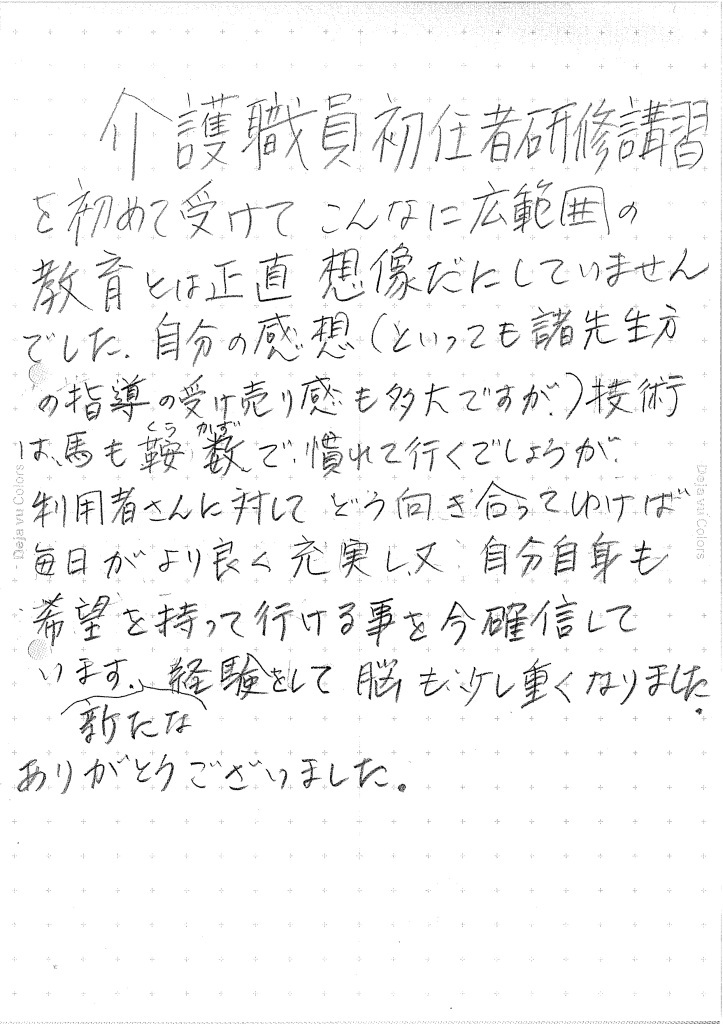 介護職員初任者研修講習
を初めて受けて こんなに広範囲の
教育とは正直 想像だにしていません
でした. 自分の感想(といっても諸先生方
の指導の受け売り感も多大ですが.)技術
くら かず
は、馬も鞍数で.慣れて行くでしょうが.
利用者さんに対して どう向き合ってゆけば
毎日がより良く充実し、又 自分自身も
希望を持って行ける事を今確信して
います. 経験をして 脳も少し重くなりました.
新たな
ありがとうございました.
Deja vu Colors
Deja vu Colors